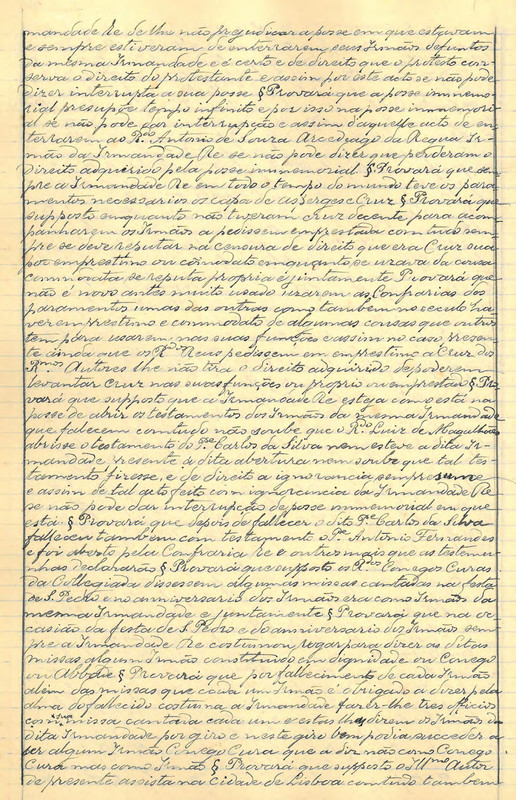 mandade Re de lhe não prejudicar a posse em que estavam
e sempre estiveram de enterrarem seus Irmãos defuntos
da mesma Irmandade e é certo e de direito que o protesto con-
serva o direito do protestante e assim por este acto se não pode
dizer interrupta a sua posse § Provará que a posse immemo-
rial presupõe tempo infinito e por isso na posse immemori-
al se não pode dar interrupção e assim d'aquelle acto de en-
terrarem ao Rdo Antonio de Souza Arcediago da Regua Ir-
mão da Irmandade Re se não pode dizer que perderam o
direito adquirido pela posse immemorial § Provará que sem-
pre a Irmandade Re em todo o tempo do mundo teve os para-
mentos necessarios os capa de asperges e Cruz § Provará que
supposto enquanto não tiveram cruz decente para acom-
panharem os Irmãos a pedissem emprestada com tudo sem-
pre se deve reputar na censura de direito que era Cruz sua
por emprestimo ou cómodato emquanto se uzava da cousa
commodata se reputa propria e juntamente Provará que
não é novo antes muito usado uzarem as Confrarias dos
paramentos umas das outras como tambem no seculo ha-
ver emprestimo e commodato de algumas cousas que outros
tem para usarem nas suas funções e assim no caso presen-
te ainda que os Rdos Reus pedissem em emprestimo a Cruz dos
Rmos Autores lhe não tira o direito adquirido de poderem
levantar cruz nas suas funções ou proprio ou emprestado § Pro-
vará que supposto que a Irmandade Re esteja como está na
posse de abrir os testamentos dos Irmãos da mesma Irmandade
que falecem comtudo não soube que o Rdo Luiz de Magalhães
abrisse o testamento do Pe Carlos da Silva nem esteve a dita Ir-
mandade presente á dita abertura nem soube que tal tes-
tamento fizesse, e de direito a ignorancia sempresume
e assim de tal auto feito com ignorancia da Irmandade Re
se não pode dar interrupção de posse immemorial em que
está § Provará que depois de fallecer o dito Pe Carlos da Silva
falleceu tambem com testamento o Pe Antonio Fernandes
e foi aberto pela Confraria Re e outros mais que as testemu-
nhas declararão § Provará que supposto os Rdos Conegos Curas
da Collegiada dissessem algumas missas cantadas na festa
de S. Pedro e no anniversario dos Irmãos era como Irmãos da
mesma Irmandade e juntamente § Provará que na oc-
casião da festa de S. Pedro e do anniversario dos Irmãos sem-
pre a Irmandade Re costumou rogar para dizer as ditas
missas algum Irmão constituido em dignidade ou Conego
ou Abbade § Provará que por fallecimento de cada Irmão
alem das missas que cada um Irmão é obrigado a dizer pela
alma do fallecido costuma a Irmandade fazer-lhe tres officios
com sua missa cantada cada um e estas lhe dizem os Irmãos da
dita Irmandade por giro e neste giro bem podia succeder a
ser algum Irmão Conego Cura que a diz não como Conego
Cura mas como Irmão § Provará que supposto o Illmo Autor
de presente assista na cidade de Lisboa comtudo tambem